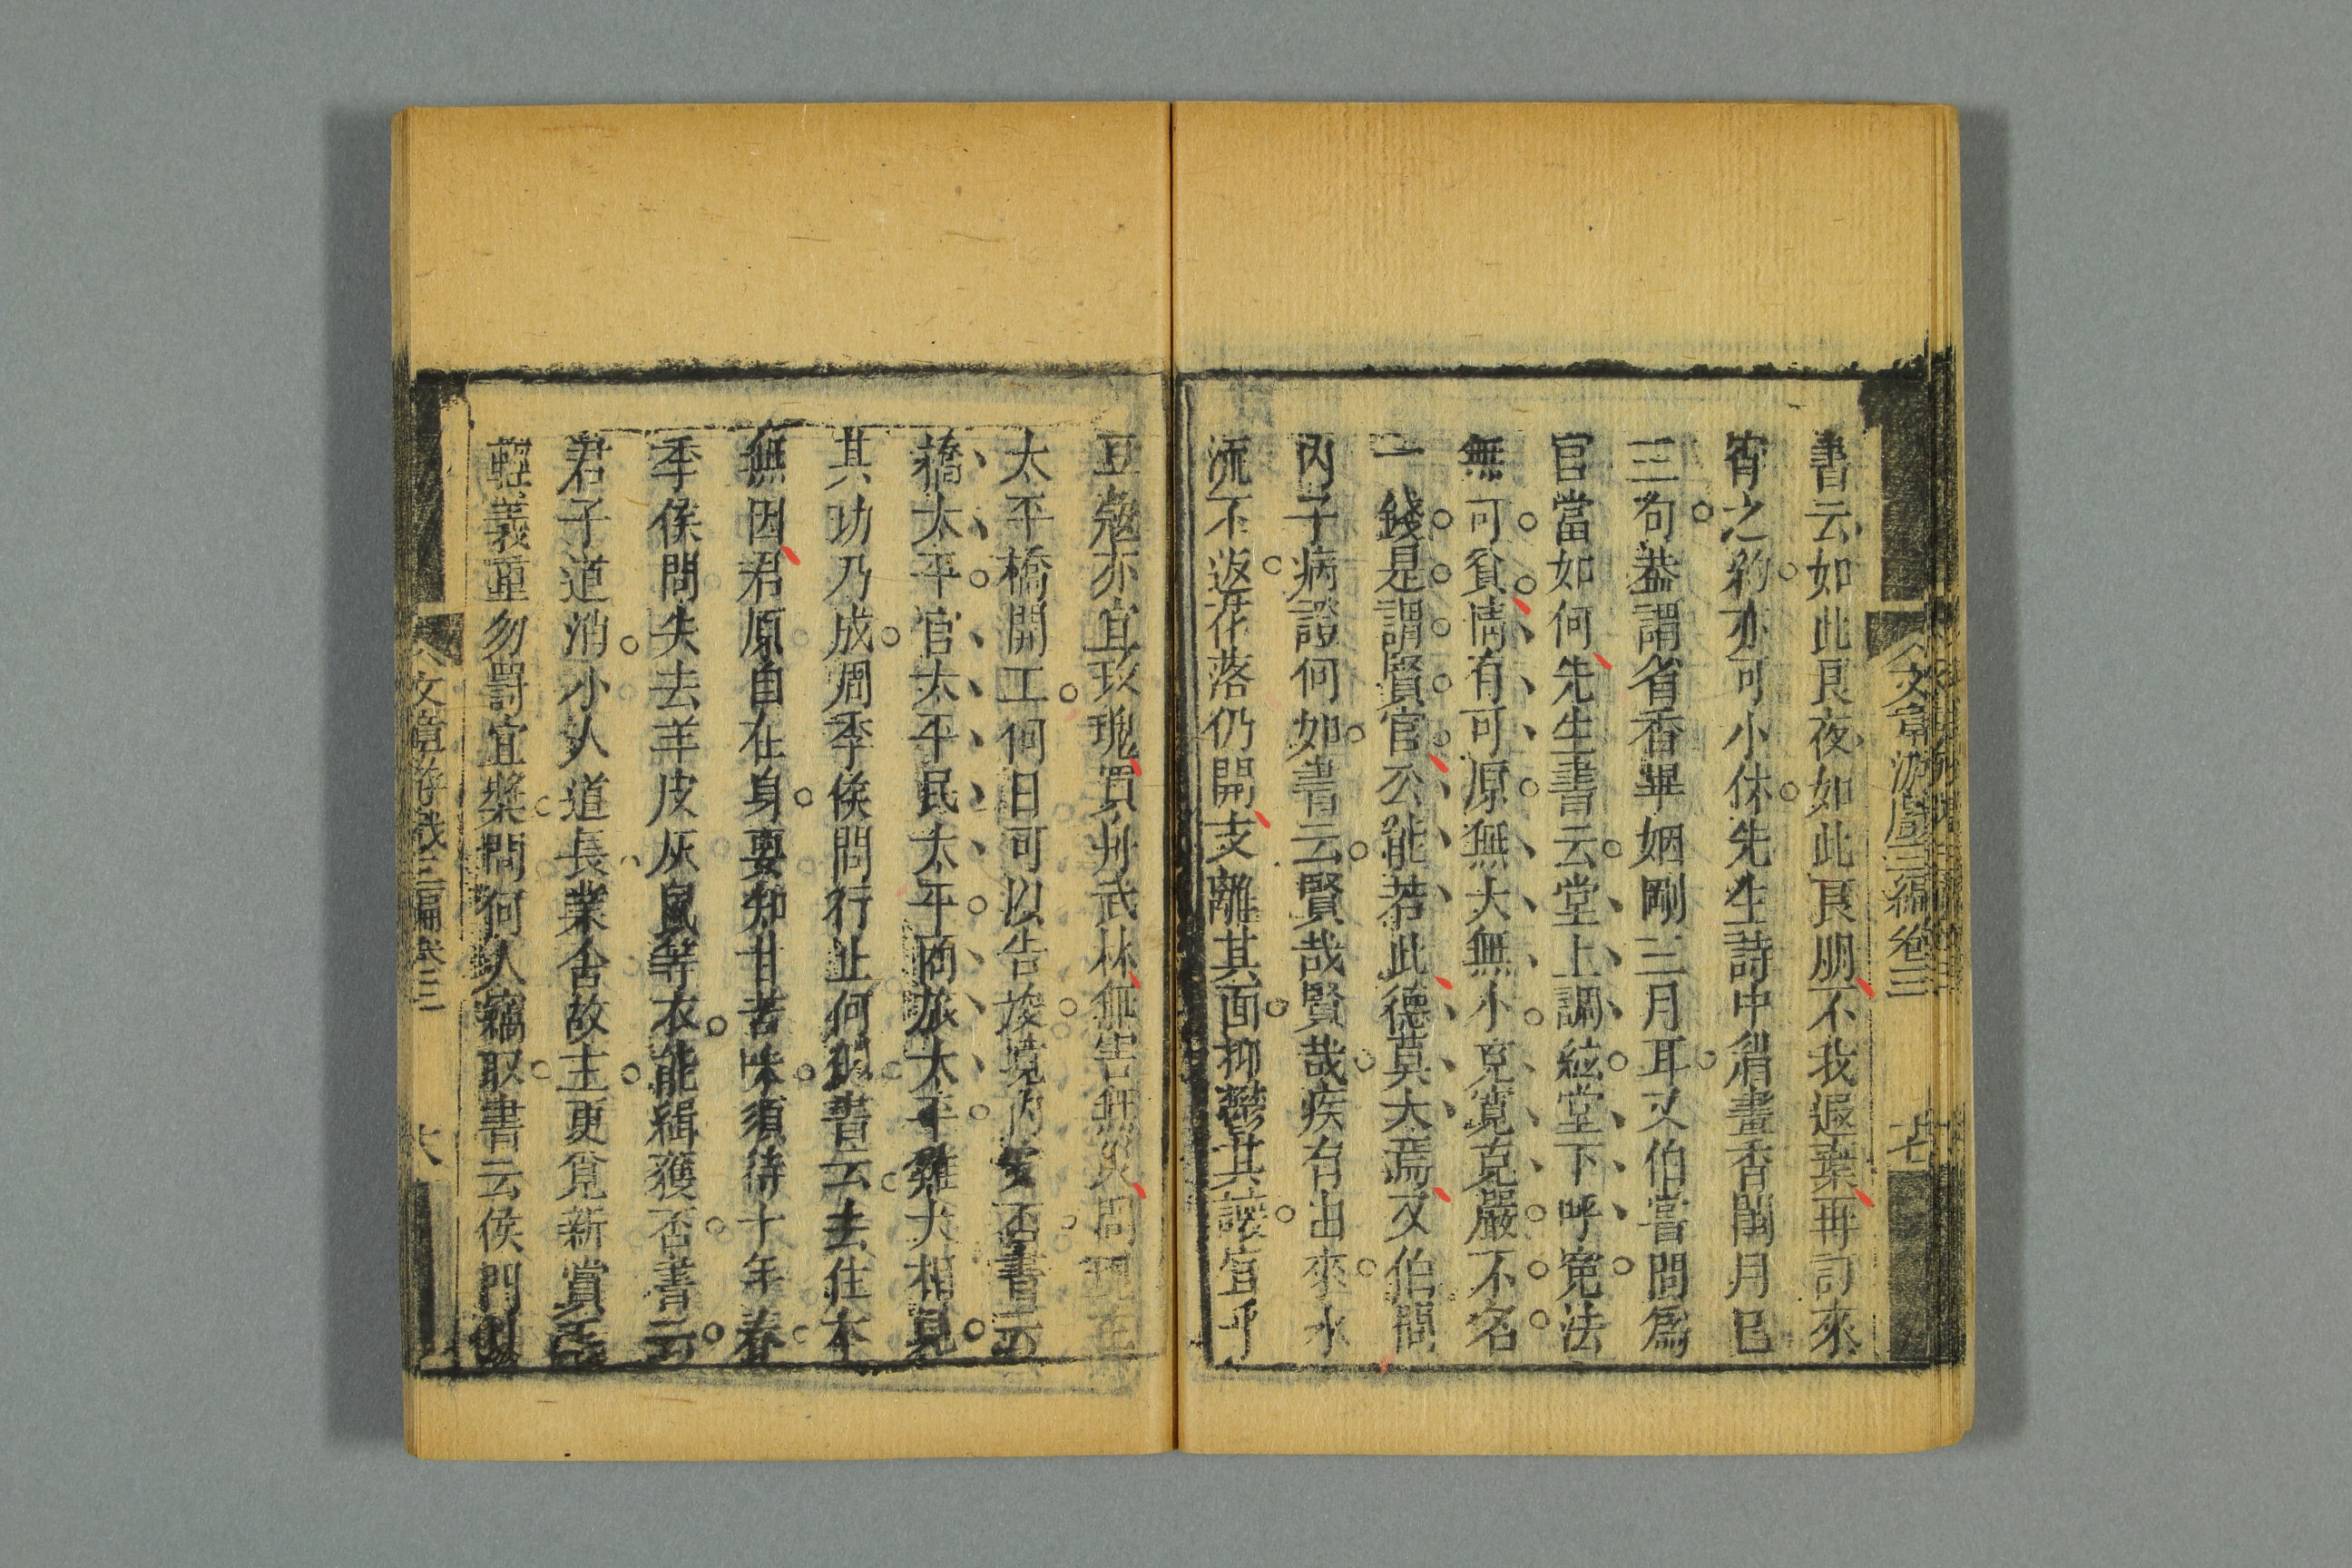 文章游戲三編卷三
七
書云如此良夜如此良朋不我遐棄再訂來
宵之約亦可小休先生詩中稍畫香閨月已
三句葢謂省香畢姻剛三月耳又伯嘗問爲
官當如何先生書云堂上調絃堂下呼寃法
無可貧情有可原無大無小克寬克嚴不名
一錢是謂賢官公能若此德莫大焉又伯問
內子病證何如書云賢哉賢哉疾有由來水
流不返花落仍開支離其面抑鬱其該宜乎
豆剜亦宜玫瑰買舟武林無害無災問現在
太平橋開工何日可以告竣境內安否書云
橋太平官太平民太平商旅太平雞犬相見
其功乃成周季侯問行止何如書云去住本
無因君原自在身要知甘苦味須待十年春
季侯問失去羊皮灰鼠等衣能緝獲否書云
君子道消小人道長業舍故主更覓新賞
輕義重勿罰宜奬問何人竊取書云侯門
文章游戲三編卷三
大